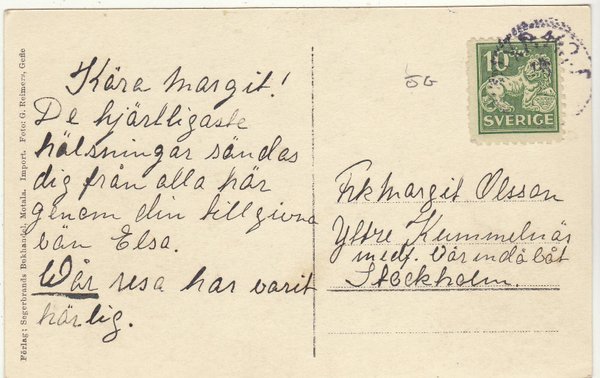 Kära Margit!
De hjärtligaste
hälsningar sändas
dig från alla här
genom din tillgivna
vän Elsa.
Vår resa har varit
härlig.
Frk Margit Olsson
Yttre Kummelnäs
med. Värmdöbåt
Stockholm.
10
SVERIGE
ÖG
Förlag: Segerbrands Bokhandel, Motala. Import. Foto: G. Reimers, Gefle